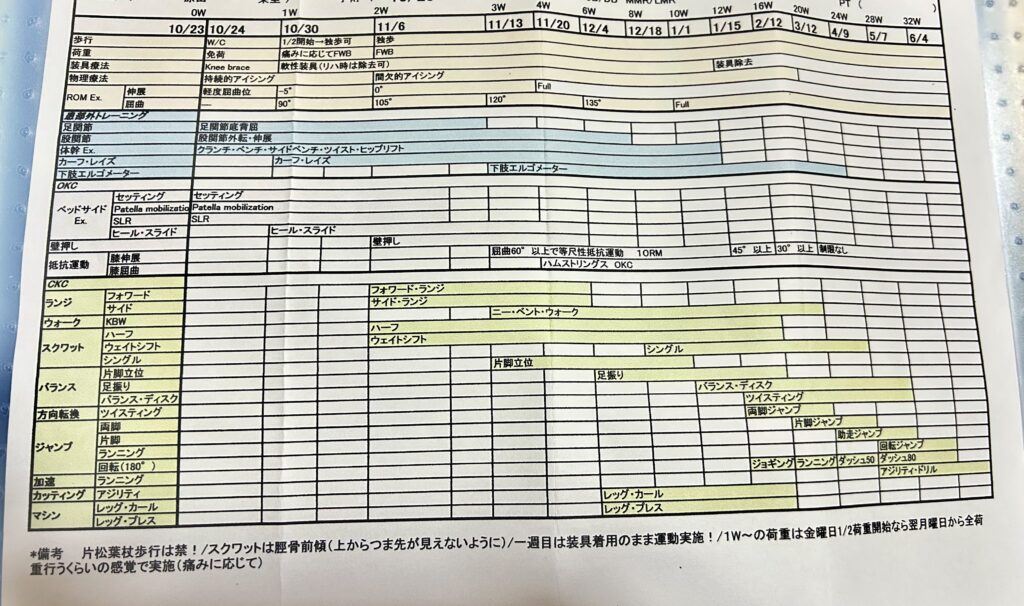 PT (　　　)
0W 1W 2W 3W 4W 6W 8W 12W 16W 20W 24W 28W 32W
10/23 10/24 10/30 11/6 11/13 11/20 12/4 12/18 1/1 1/15 2/12 3/12 4/9 5/7 6/4
歩行 W/C 1/2開始→独歩可 独歩
荷重 免荷 痛みに応じてFWB FWB
装具療法 Knee brace 軟性装具(リハ時は除去可) 装具除去
物理療法 持続的アイシング 間欠的アイシング
ROM Ex. 伸展 軽度屈曲位 -5° 0° Full
屈曲 — 90° 105° 120° 135° Full
患部外トレーニング
足関節 足関節底背屈
股関節 股関節外転・伸展
体幹 Ex. クランチ・ベンチ・サイドベンチ・ツイスト・ヒップリフト
カーフ・レイズ カーフ・レイズ
下肢エルゴメーター 下肢エルゴメーター
OKC
ベッドサイド Ex. セッティング セッティング
Patella mobilizatio Patella mobilization
SLR SLR
ヒール・スライド ヒール・スライド
壁押し 壁押し
抵抗運動 膝伸展 屈曲60° 以上で等尺性抵抗運動 10RM 45° 以上 30° 以上 制限なし
膝屈曲 ハムストリングス OKC
CKC
ランジ フォワード フォワード・ランジ
サイド サイド・ランジ
ウォーク KBW ニー・ベント・ウォーク
スクワット ハーフ ハーフ
ウェイトシフト ウェイトシフト
シングル シングル
バランス 片脚立位 片脚立位
足振り 足振り
バランス・ディスク バランス・ディスク
方向転換 ツイスティング ツイスティング
ジャンプ 両脚 両脚ジャンプ
片脚 片脚ジャンプ
ランニング 助走ジャンプ
回転(180°) 回転ジャンプ
加速 ランニング ジョギング ランニング ダッシュ50 ダッシュ80
カッティング アジリティ アジリティ・ドリル
マシン レッグ・カール レッグ・カール
レッグ・プレス レッグ・プレス
*備考　片松葉杖歩行は禁！/スクワットは脛骨前傾(上からつま先が見えないように)/一週目は装具着用のまま運動実施！/1W～の荷重は金曜日1/2荷重開始なら翌月曜日から全荷
重行うくらいの感覚で実施(痛みに応じて)